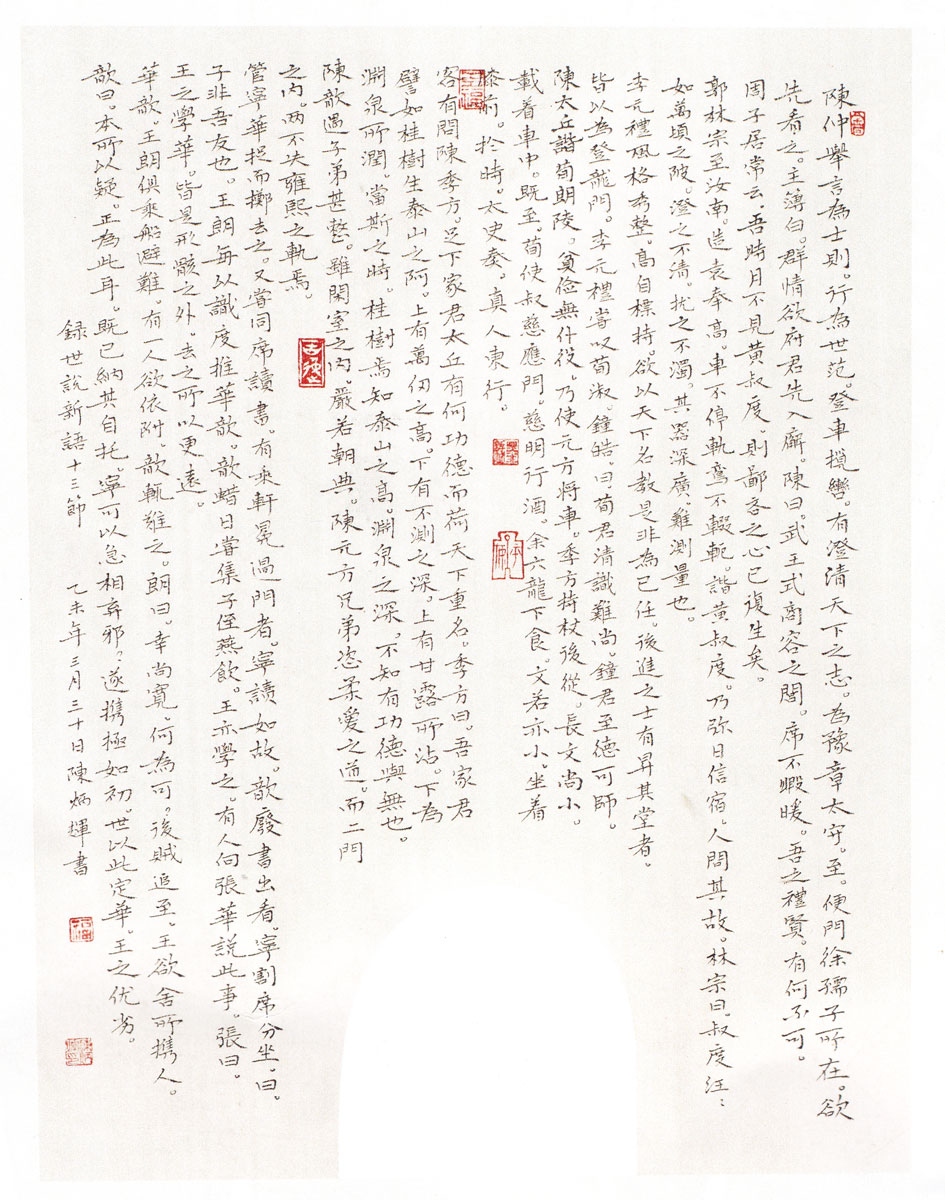 陳仲舉言為士則。行為世范。登車攬轡。有澄清天下之志。為豫章太守。至。便問徐孺子所在。欲
先看之。主薄白。群情欲府君先入廨。陳曰。武王式商容之閭。席不暇暖。吾之禮賢。有何不可。
周子居常云。吾時月不見黃叔度。則鄙吝之心已復生矣。
郭林宗至汝南。造袁奉高。車不停軌。鸞不輟軛。詣黃叔度。乃弥日信宿。人問其故。林宗曰。叔度汪〻
如萬頃之陂。澄之不清。扰之不濁。其器深廣。難測量也。
李元禮風格秀整。高自標持。欲以天下名教是非為已任。後進之士有昇其堂者。
皆以為登龍門。李元禮嘗叹荀淑。鐘皓。曰荀君清識難尚。鐘君至德可師。
陳太丘詣荀朗陵。貧儉無什役。乃使元方將車。季方持杖後從。長文尚小。
載着車中。既至。荀使叔慈應門。慈明行酒。余六龍下食。文若亦小。坐着
膝前。於時。太史奏。真人東行。
客有問陳季方。足下家君太丘有何功德而荷天下重名。季方曰。吾家君
譬如桂樹生泰山之阿。上有萬仞之高。下有不測之深。上有甘露所沾。下為
淵泉所潤。當斯之時。桂樹焉知泰山之高。淵泉之深。不知有功德與無也。
陳歆遇子弟甚整。雖閑室之內。嚴若朝典。陳元方兄弟恣柔愛之道。而二門
之內。两不失雍熙之軌焉。
管寧華捉而擲去之。又嘗同席讀書。有乘軒冕過門者。寧讀如故。歆廢書出看。寧割席分坐。曰。
子非吾友也。王朗每以識度推華歆。歆蜡日嘗集子侄燕飲。王亦學之。有人向張華説此事。張曰。
王之學華。皆是形骸之外。去之所以更遠。
華歆。王朗俱乘船避難。有一人欲依附。歆輒難之。朗曰。幸尚寬。何為可。後賊追至。王欲舍所攜人。
歆曰。本所以疑。正為此耳。既已納其自托。寧可以急相弃邪。遂攜極如初。世以此定華。王之优劣。
録世說新語十三節 乙未年三月三十日陳炳輝書